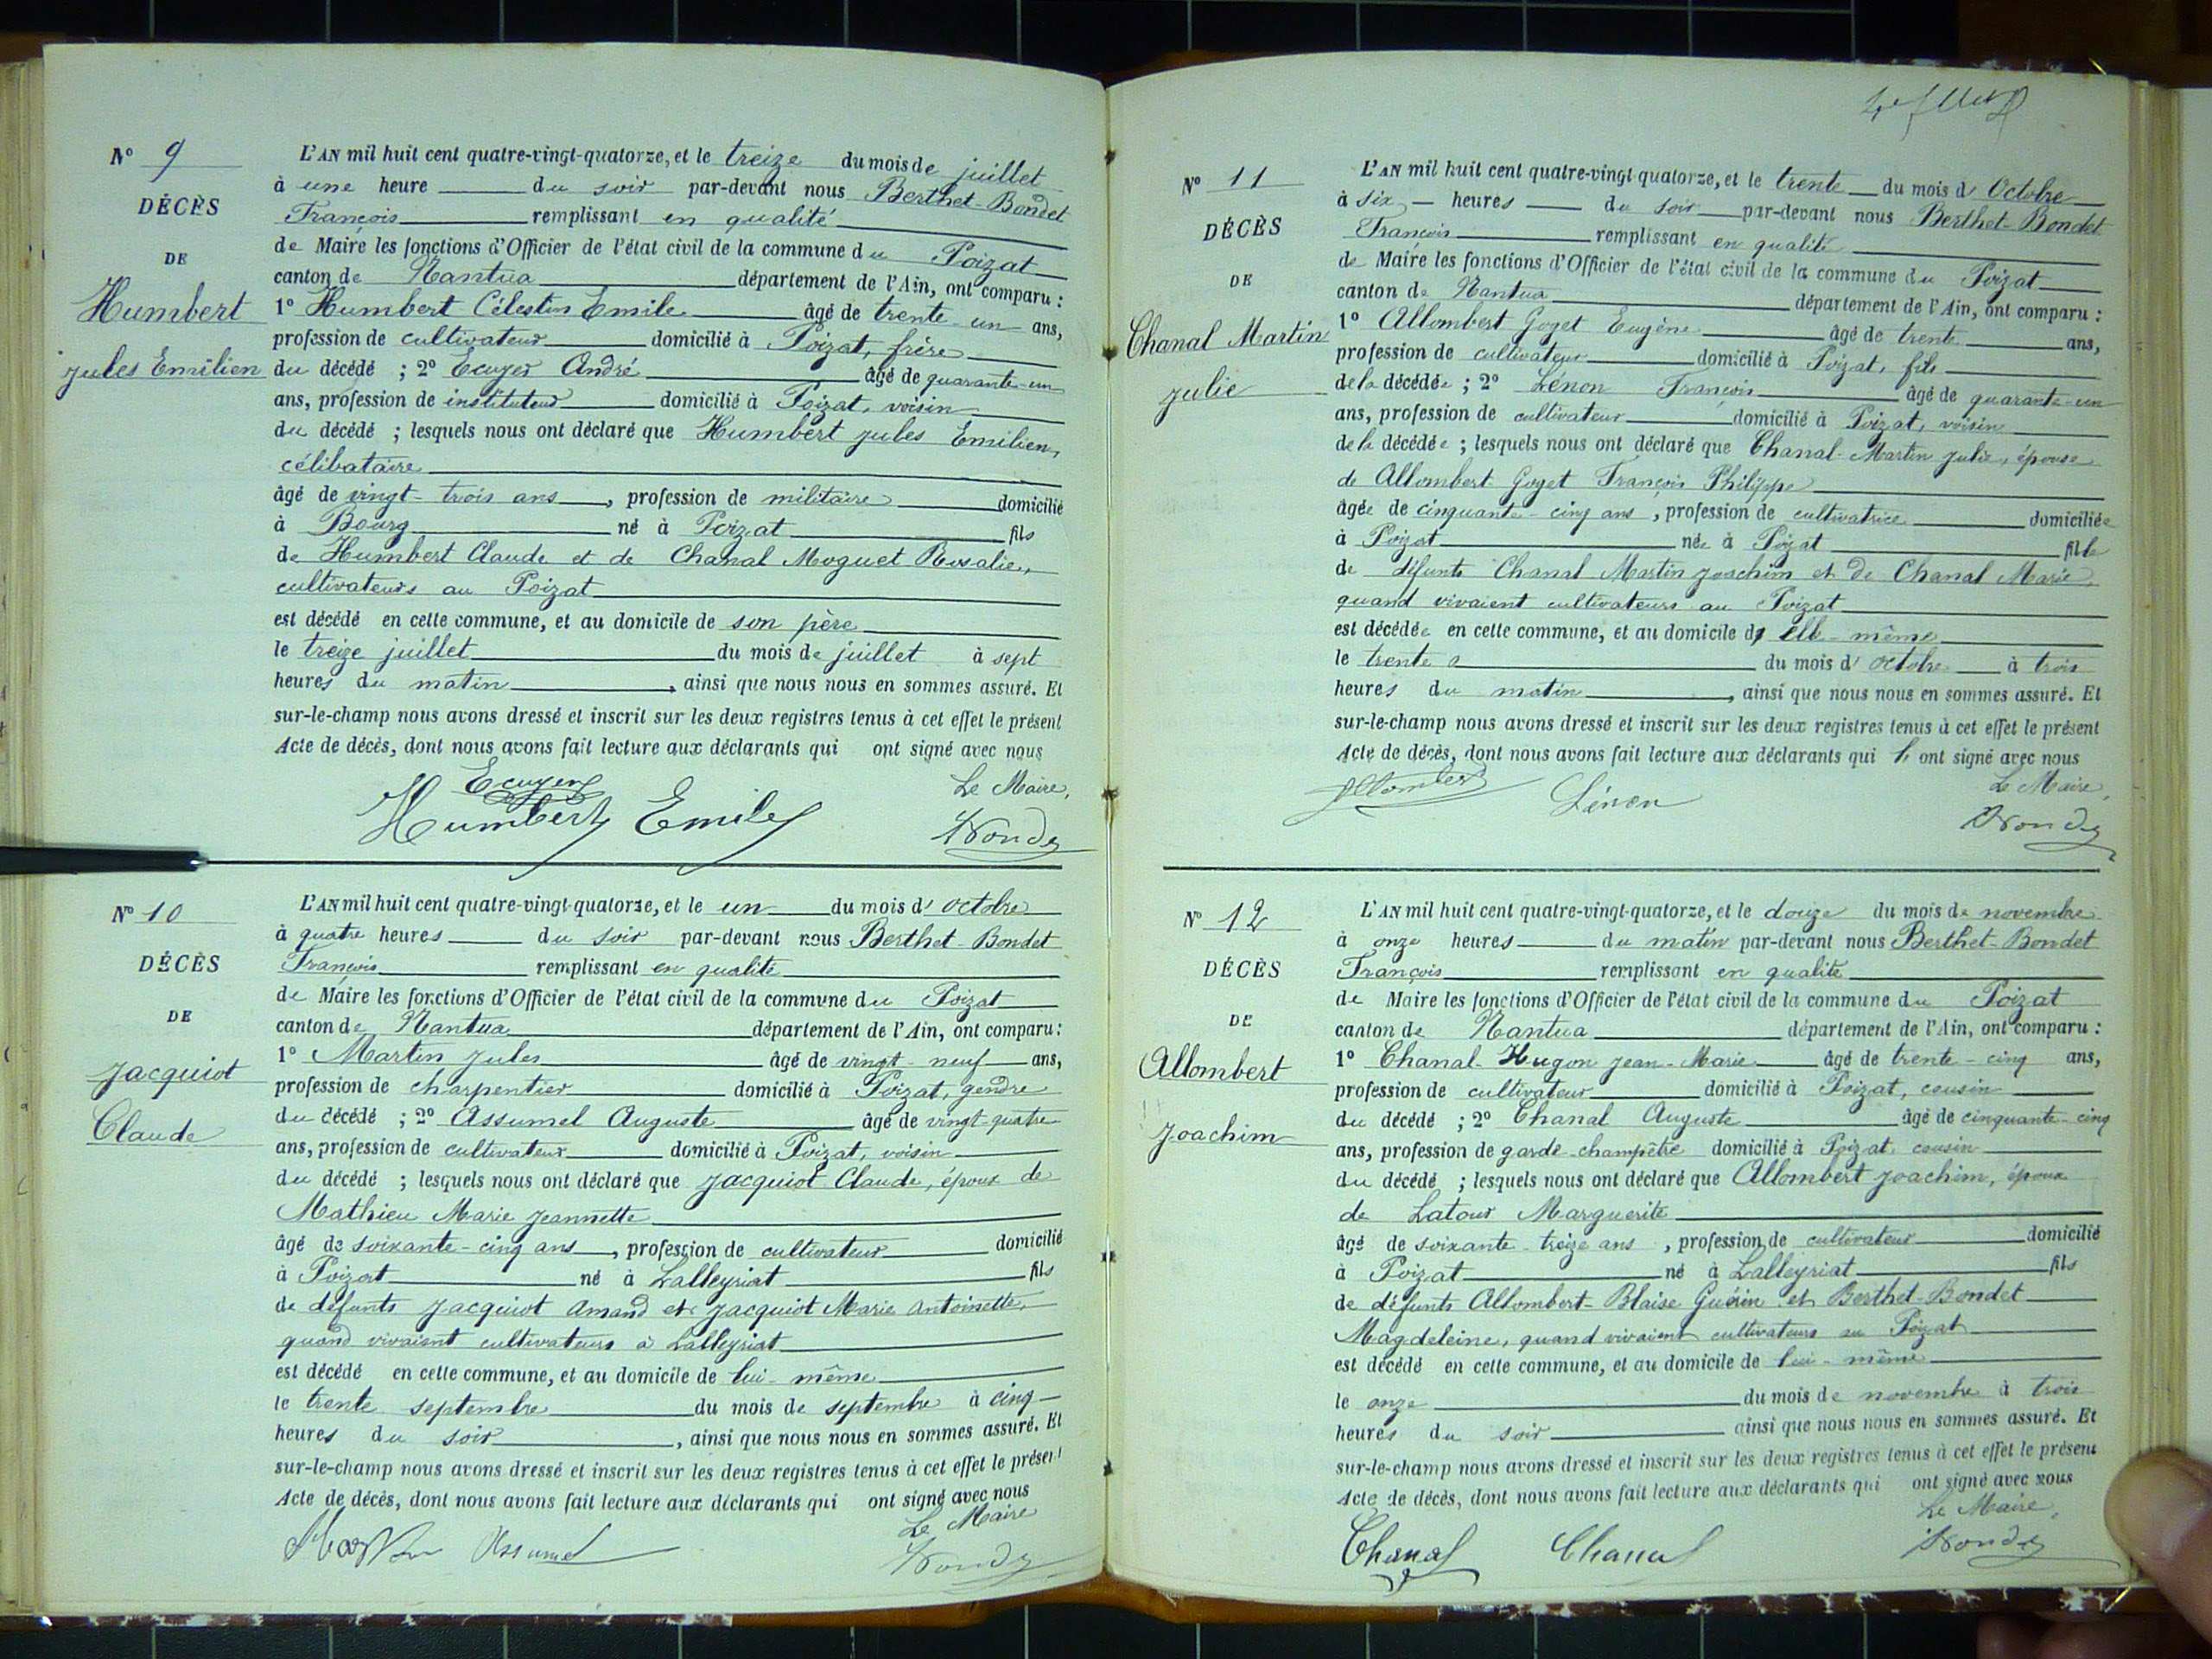 Nº 9
DÉCÈS
DE
Humbert
Jules Emilien
L'AN mil huit cent quatre-vingt-quatorze, et le treize du mois de juillet
à une heure du soir par-devant nous Berthet-Bondet
François remplissant en qualité
de Maire les fonctions d'Officier de l'état civil de la commune du Poizat
canton de Nantua département de l'Ain, ont comparu :
1º Humbert Célestin Emile âgé de trente-un ans,
profession de cultivateur domicilié à Poizat, frère
du décédé ; 2º Ecuyer André âgé de quarante-un
ans, profession de instituteur domicilié à Poizat, voisin
du décédé ; lesquels nous ont déclaré que Humbert Jules Emilien,
célibataire
âgé de vingt-trois ans, profession de militaire domicilié
à Bourg né à Poizat fils
de Humbert Claude et de Chanal Moguet Rosalie,
cultivateurs au Poizat
est décédé en cette commune, et au domicile de son père
le treize juillet du mois de juillet à sept
heures du matin, ainsi que nous nous en sommes assuré. Et
sur-le-champ nous avons dressé et inscrit sur les deux registres tenus à cet effet le présent
Acte de décès, dont nous avons fait lecture aux déclarants qui ont signé avec nous
Ecuyer
Humbert Emile
Le Maire,
Nº 10
DÉCÈS
DE
Jacquiot
Claude
L'AN mil huit cent quatre-vingt-quatorze, et le un du mois d'octobre
à quatre heures du soir par-devant nous Berthet-Bondet
François remplissant en qualité
de Maire les fonctions d'Officier de l'état civil de la commune du Poizat
canton de Nantua département de l'Ain, ont comparu :
1º Martin Jules âgé de vingt-neuf ans,
profession de charpentier domicilié à Poizat, gendre
du décédé ; 2º Assumel Auguste âgé de vingt-quatre
ans, profession de cultivateur domicilié à Poizat, voisin
du décédé ; lesquels nous ont déclaré que Jacquiot Claude, époux de
Mathieu Marie Jeannette
âgé de soixante-cinq ans, profession de cultivateur domicilié
à Poizat né à Lalleyriat fils
de défunts Jacquiot Amand et Jacquiot Marie Antoinette,
quand vivaient cultivateurs à Lalleyriat
est décédé en cette commune, et au domicile de lui-même
le trente septembre du mois de septembre à cinq
heures du soir, ainsi que nous nous en sommes assuré. Et
sur-le-champ nous avons dressé et inscrit sur les deux registres tenus à cet effet le présent
Acte de décès, dont nous avons fait lecture aux déclarants qui ont signé avec nous
Martin Assumel
Le Maire
Nº 11
DÉCÈS
DE
Chanal Martin
Julie
L'AN mil huit cent quatre-vingt-quatorze, et le trente du mois d'Octobre
à six heures du soir par-devant nous Berthet-Bondet
François remplissant en qualité
de Maire les fonctions d'Officier de l'état civil de la commune du Poizat
canton de Nantua département de l'Ain, ont comparu :
1º Allombert Goget Eugène âgé de trente ans,
profession de cultivateur domicilié à Poizat, fils
de la décédée ; 2º Lénon François âgé de quarante-un
ans, profession de cultivateur domicilié à Poizat, voisin
de la décédée ; lesquels nous ont déclaré que Chanal-Martin Julie, épouse
de Allombert Goget François Philippe
âgée de cinquante-cinq ans, profession de cultivatrice domiciliée
à Poizat née à Poizat fille
de défunts Chanal Martin Joachim et de Chanal Marie,
quand vivaient cultivateurs au Poizat
est décédée en cette commune, et au domicile d'elle-même
le trente du mois d'octobre à trois
heures du matin, ainsi que nous nous en sommes assuré. Et
sur-le-champ nous avons dressé et inscrit sur les deux registres tenus à cet effet le présent
Acte de décès, dont nous avons fait lecture aux déclarants qui ont signé avec nous
Allombert Lénon
Le Maire,
Nº 12
DÉCÈS
DE
Allombert
Joachim
L'AN mil huit cent quatre-vingt-quatorze, et le douze du mois de novembre
à onze heures du matin par-devant nous Berthet-Bondet
François remplissant en qualité
de Maire les fonctions d'Officier de l'état civil de la commune du Poizat
canton de Nantua département de l'Ain, ont comparu :
1º Chanal-Hugon Jean-Marie âgé de trente-cinq ans,
profession de cultivateur domicilié à Poizat, cousin
du décédé ; 2º Chanal Auguste âgé de cinquante-cinq
ans, profession de garde-champêtre domicilié à Poizat, cousin
du décédé ; lesquels nous ont déclaré que Allombert Joachim, époux
de Latour Marguerite
âgé de soixante-treize ans, profession de cultivateur domicilié
à Poizat né à Lalleyriat fils
de défunts Allombert-Blaise Guérin et Berthet-Bondet
Magdeleine, quand vivaient cultivateurs au Poizat
est décédé en cette commune, et au domicile de lui-même
le onze du mois de novembre à trois
heures du soir ainsi que nous nous en sommes assuré. Et
sur-le-champ nous avons dressé et inscrit sur les deux registres tenus à cet effet le présent
Acte de décès, dont nous avons fait lecture aux déclarants qui ont signé avec nous
Chanal Chanal
Le Maire,